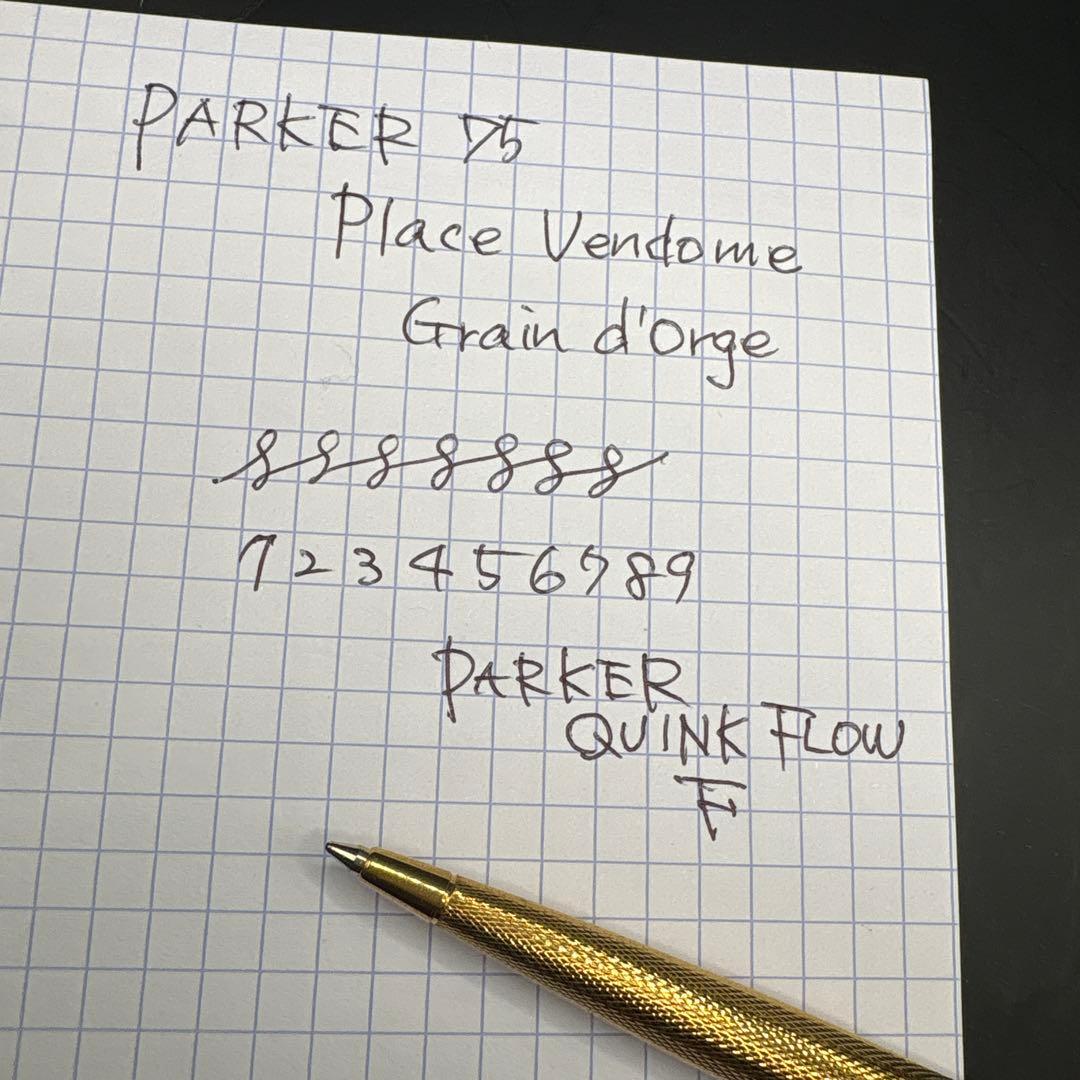 PARKER 75
Place Vendome
Grain d'Orge
8888888
1 2 3 4 5 6 7 8 9
PARKER
QUINK FLOW
F